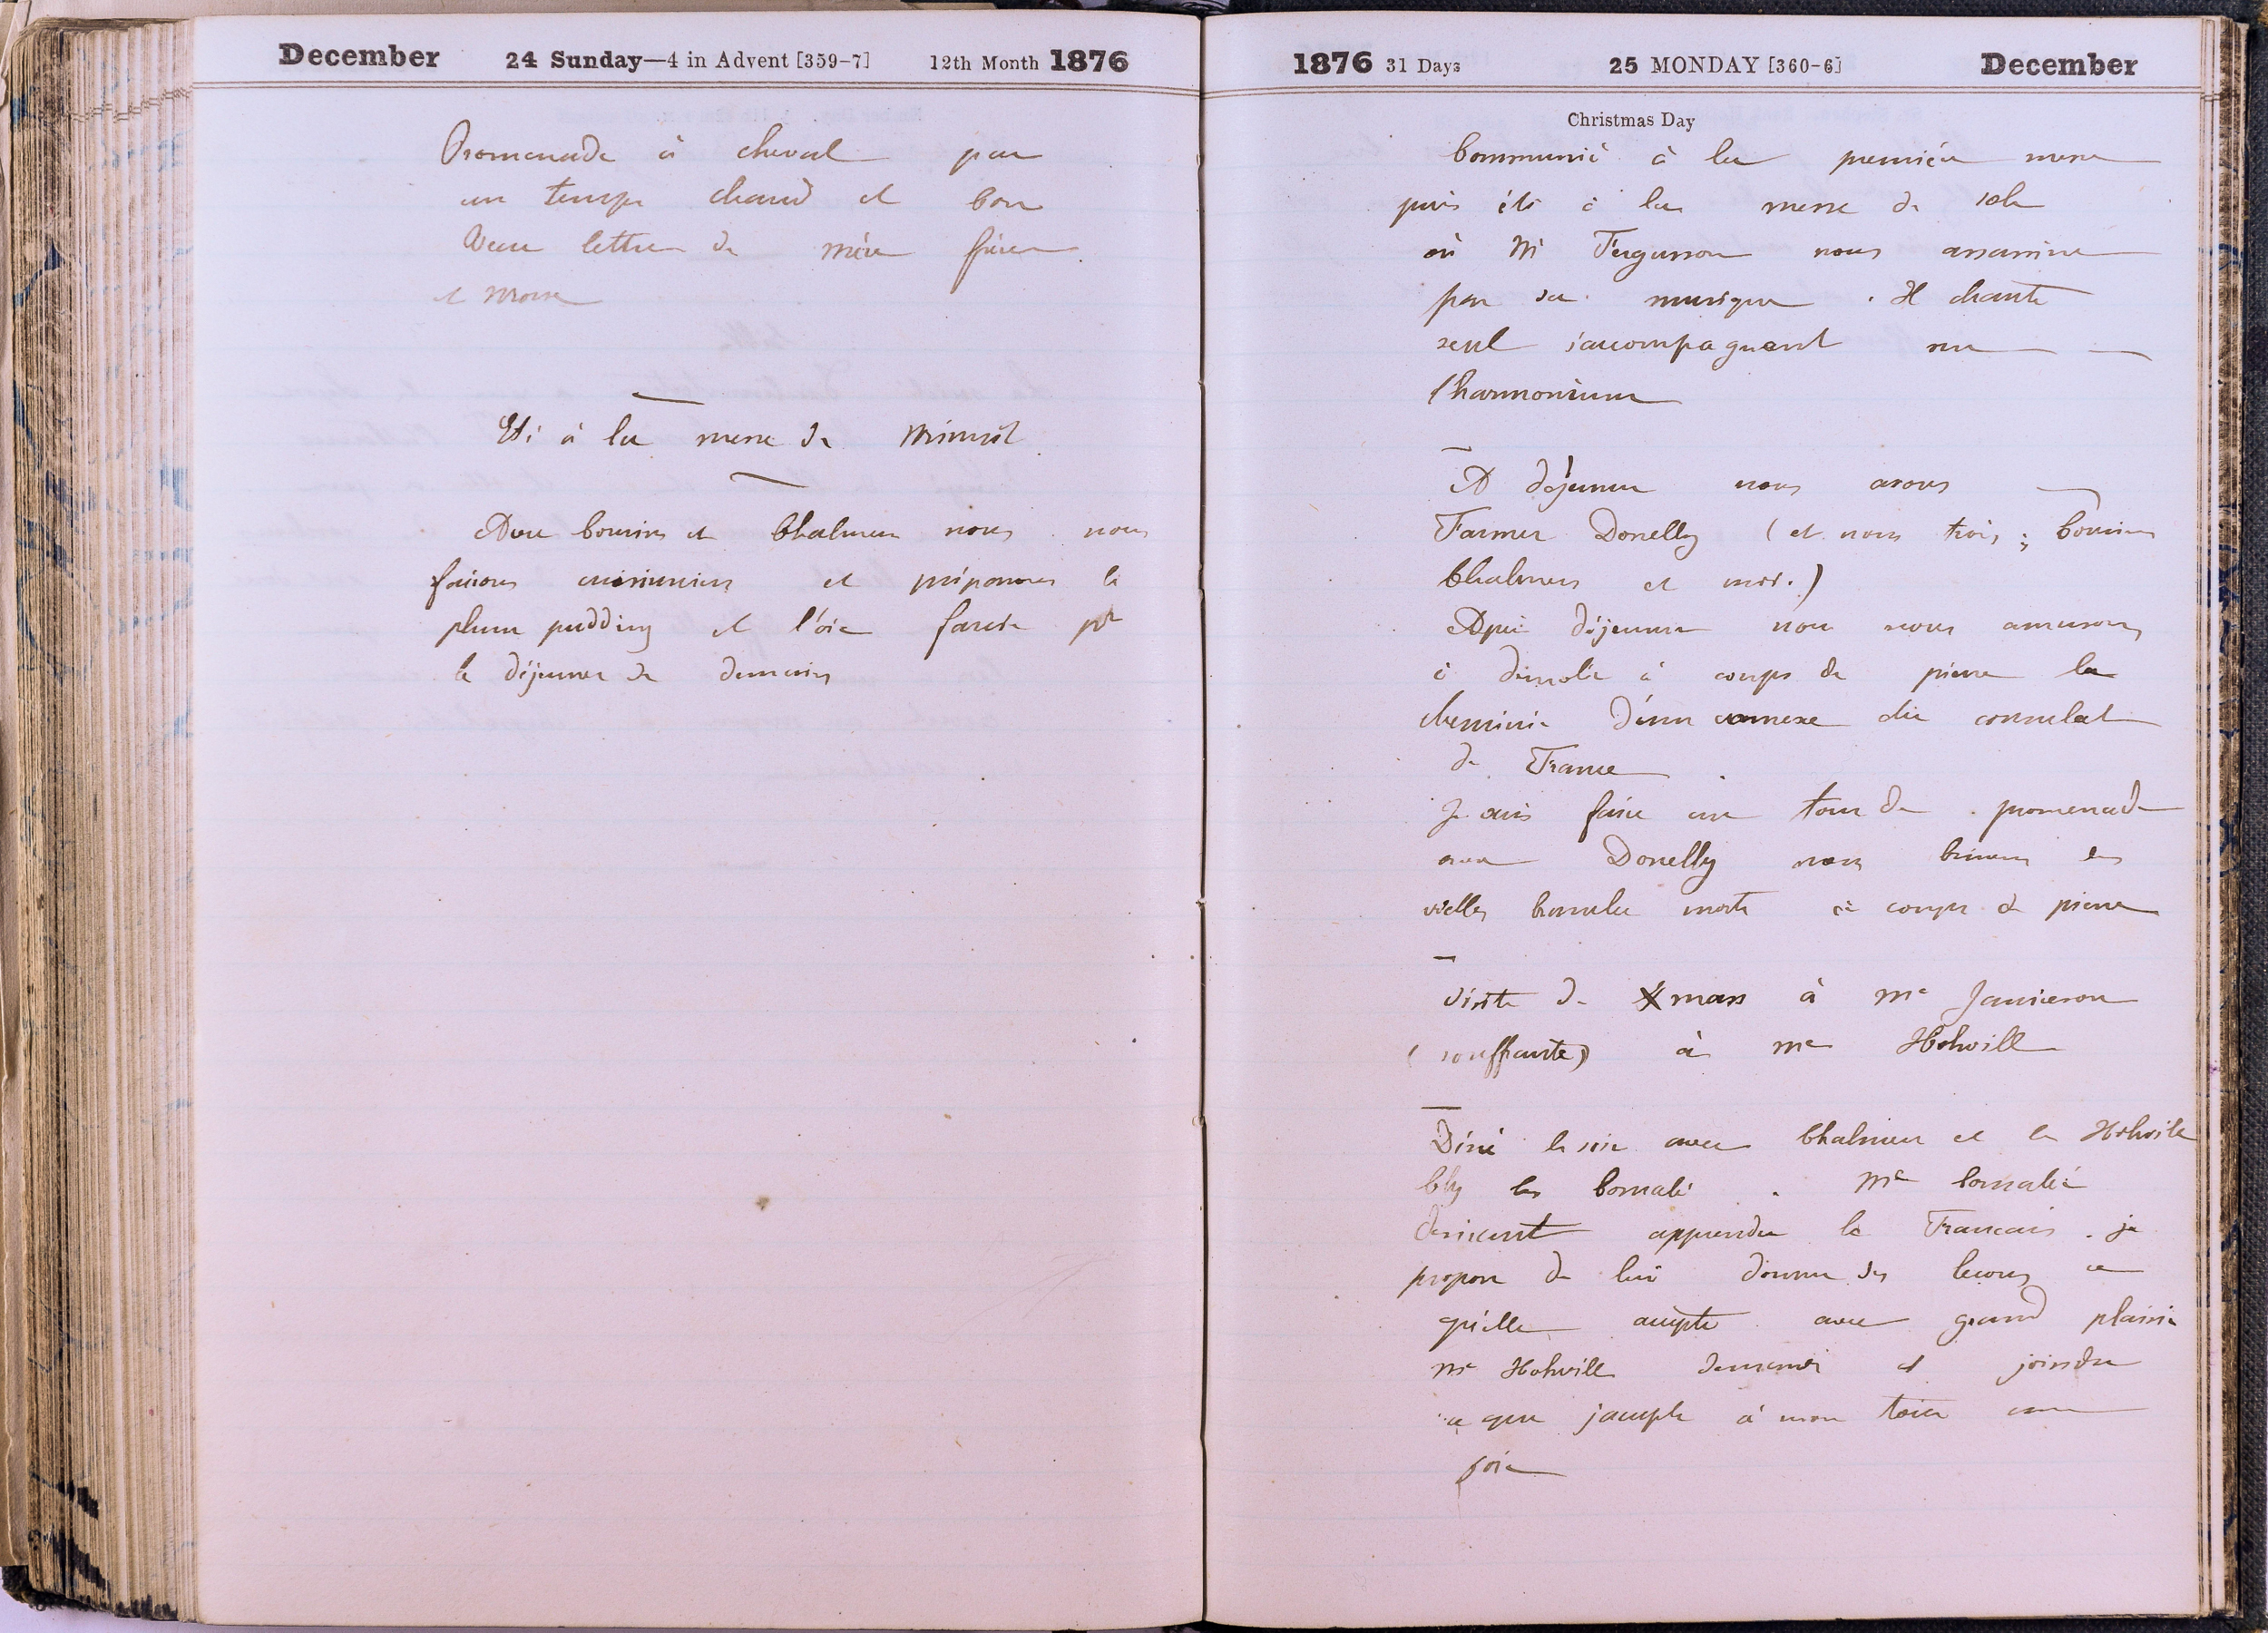 December 24 Sunday—4 in Advent [359-7] 12th Month 1876
Promenade à cheval par
un temps chaud et bon
Recu lettre de mère frère
et
Eté à la messe de Minuit
Avec Cousins et Chalmers nous nous
faisons cuisiniers et préparons le
plum pudding et l'oie farcie pr
le déjeuner de demain
1876 31 Days 25 MONDAY [360-6] December
Christmas Day
Communié à la première messe
puis été à la messe de 10h
où Mr Fergusson nous assassine
par sa musique. Il chante
seul s'accompagnant sur
l'harmonium
A déjeuner nous avons
Farmer Donelly (et nous trois; Cousins
Chalmers et moi.)
Après déjeuner nous nous amusons
à démolir à coups de pierre la
cheminée d'une annexe du consulat
de France
Je vais faire un tour de promenade
avec Donelly nous brisons les
vielles branches mortes à coups de pierre
visite de Xmass à Me Jamieson
(souffrante) à Me Holwill
Diné le soir avec Chalmers et les Holwill
Chez les Cornabé. Me Cornabé
désirant apprendre le Francais. je
propose de lui donner des lecons ce
qu'elle accepte avec grand plaisir
Me Holwill demande à joindre
ce que j'accepte à mon tour avec
joie